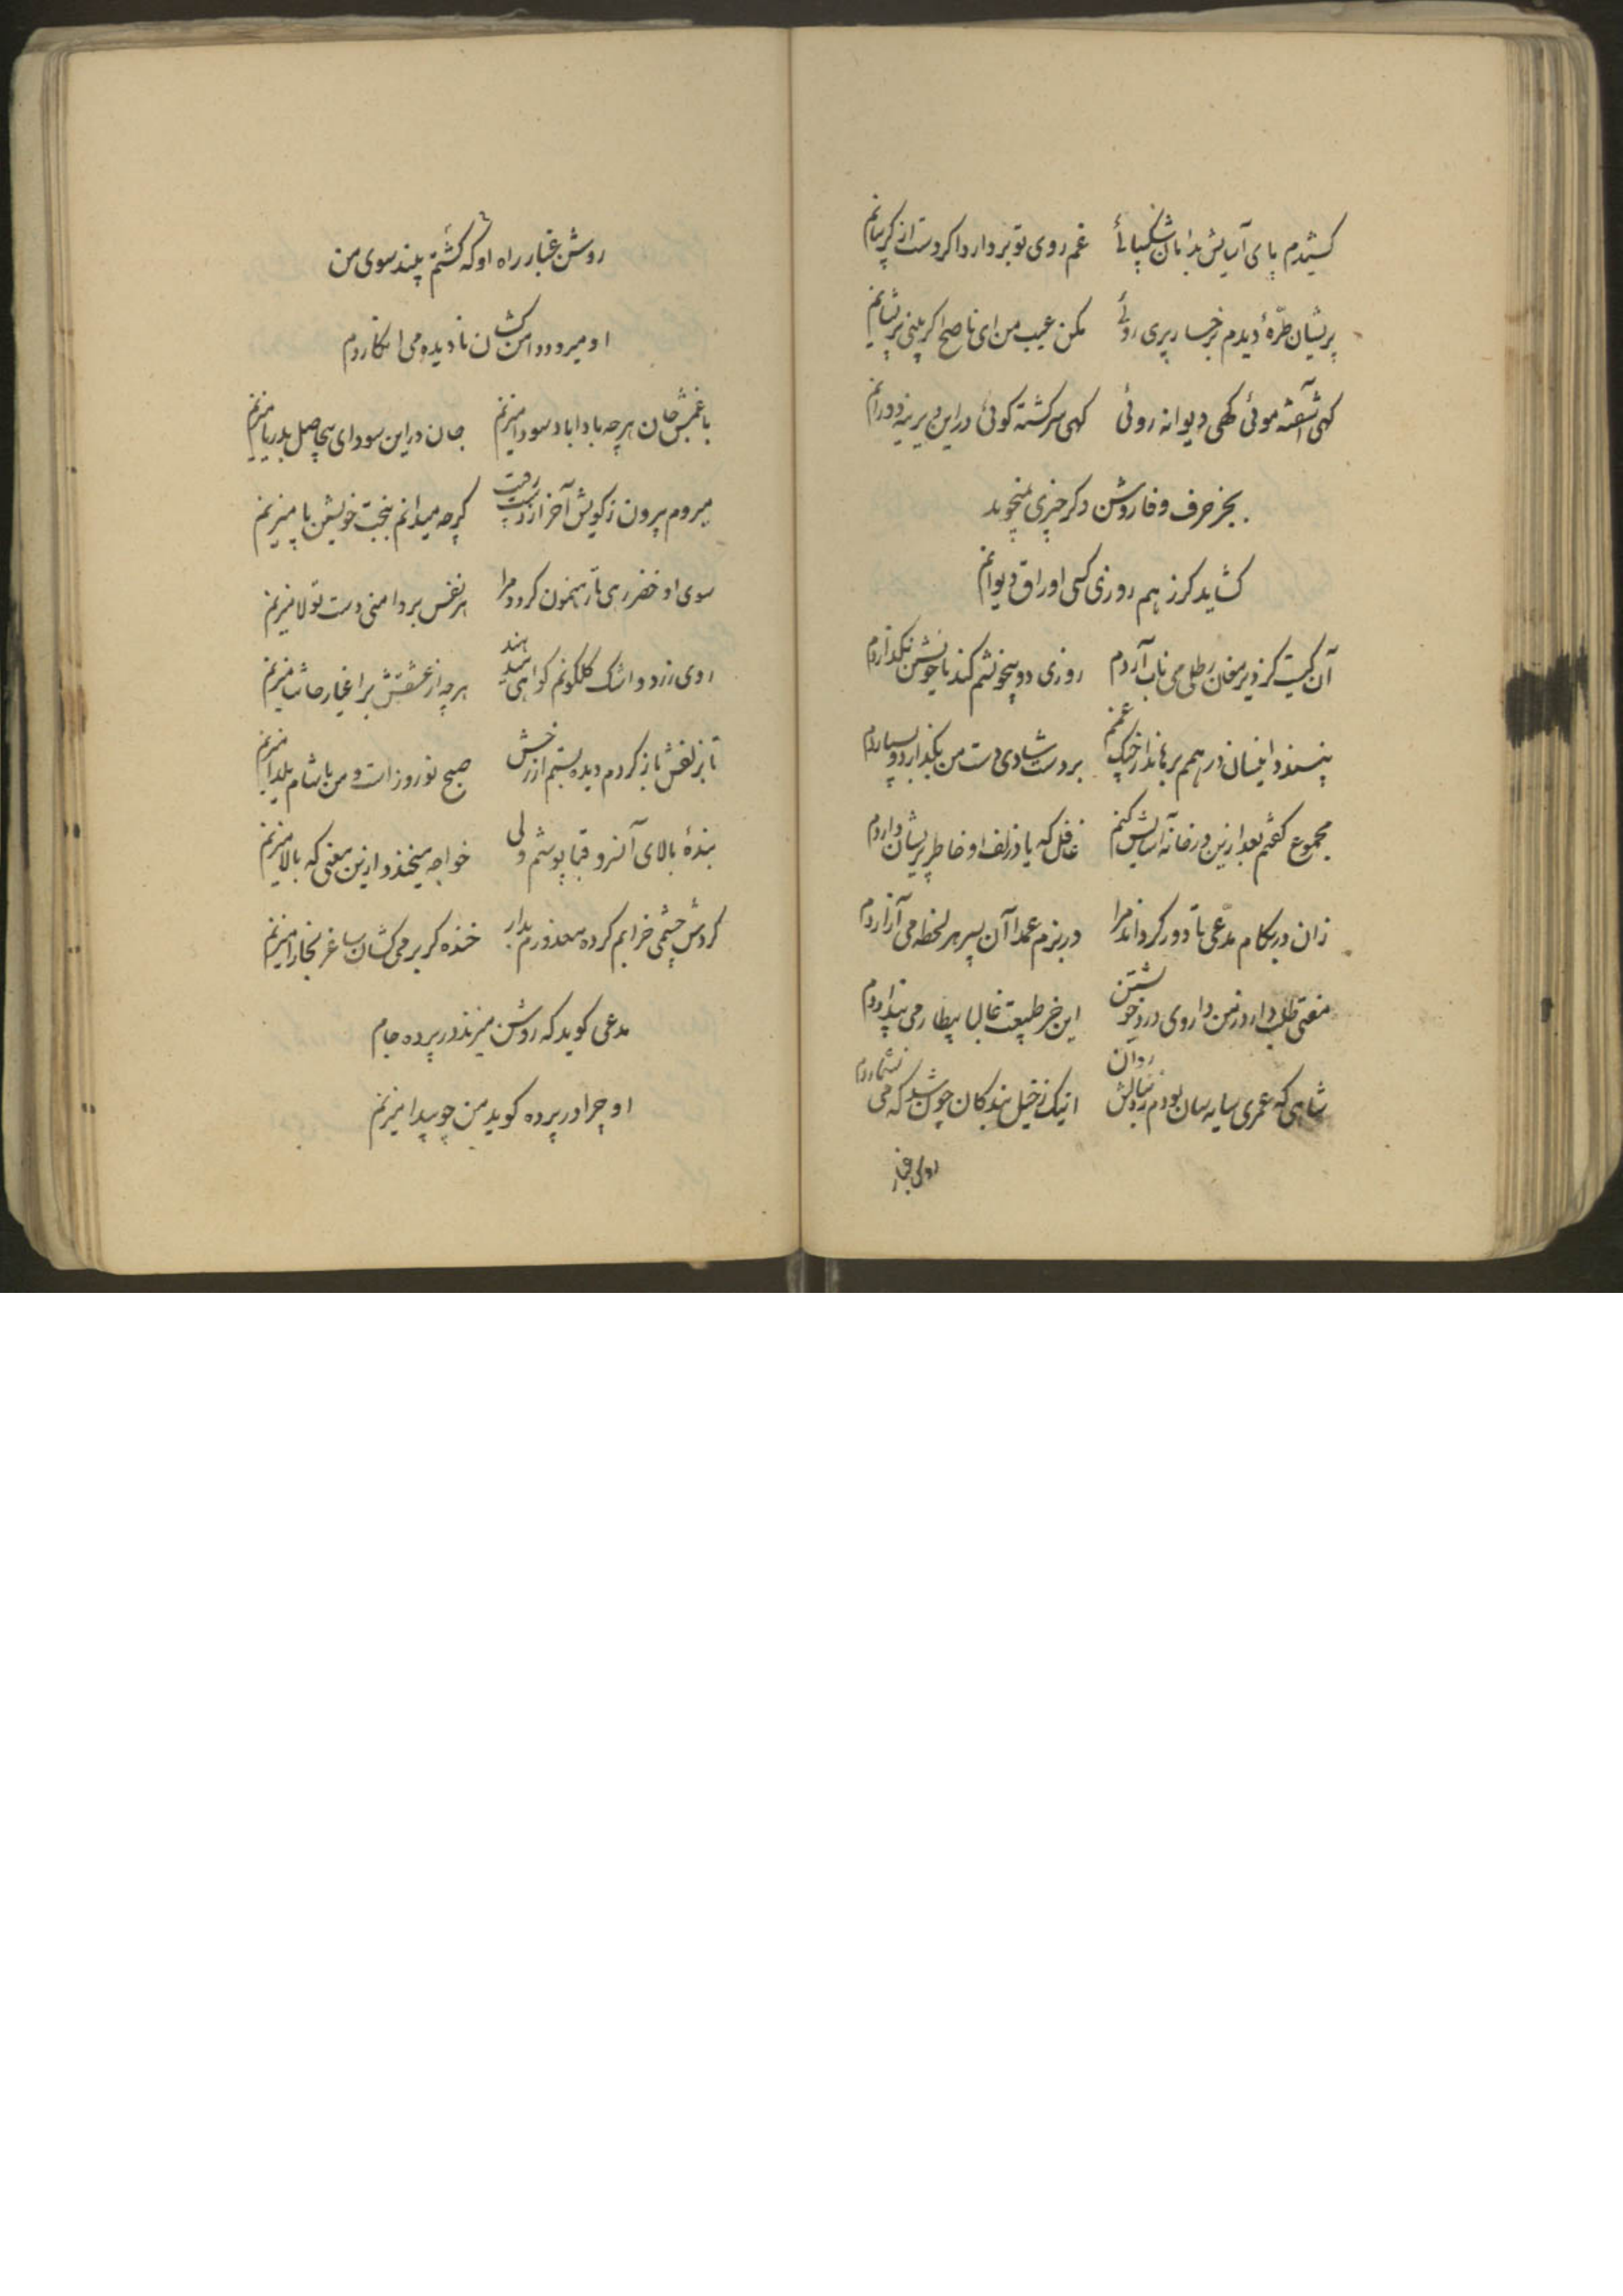 کشیدم پای آسایش بدامان شکیبائی غم روی تو بردارد اکر دست از کریبانم
پریشان طرّهٔ دیدم برخسار پری روئی مکن عیب من ای ناصح اکر بینی پریشانم
کهی آشفته موئی کهی دیوانه روئی کهی سرکشته کوئی در این دیرینه دورانم
بجز حرف وفا روشن دکر چیزی نمیجوید
کشاید کر ز هم روزی کسی اوراق دیوانم
آن کیست کز دیر مغان رطل می ناب آردم روزی دو بیخویشم کند با خویشتن نکذاردم
پنسندد اینسان درهمم برهاند از چنک غمم بر دست شادی دست من بکذارد و بسپاردم
مجموع کفتم بعد ازین در خانه آسایش کنم غافل که یاد زلف او خاطر پریشان داردم
زان در بکام مدّعی تا دور کرداند مرا در بزم عمدا آن پسر هر لحظه می آزاردم
مفتی طلب دارد ز من داروی درد خویشتن این خر طبیعت غالبا بیطار می پنداردم
شاهی که عمری سایه سان بودم بدنبالش روان اینک ز خیل بندکان چون شد که می نشماردم
روشن غبار
روشن غبار راه او که کشتم بیند سوی من
او میرود دامن کشان نادیده می انکاردم
با غمش جان هر چه بادا باد سودا میزنم جان در این سودای بیحاصل بدریا میزنم
میروم بیرون ز کویش آخر از دست رقیب کرچه میدانم ببخت خویشتن پا میزنم
سوی او خضر رهی تا رهنمون کردد مرا هر نفس بر دامنی دست تولا میزنم
روی زرد و اشک کلکونم کواهی میدهند هر چه از عشقش بر اغیار حاشا میزنم
تا بزلفش باز کردم دیده بستم از رخش صبح نوروز است و من با شام یلدا میزنم
بندهٔ بالای آنسرو قبا پوشم ولی خواجه میخندد ازین معنی که بالا میزنم
کردش چشمی خرابم کرده معذورم بدار خنده کر بر می کشان ساغر بخارا میزنم
مدعی کوید که روشن میزند در پرده جام
او چرا در پرده کوید من چو پیدا میزنم